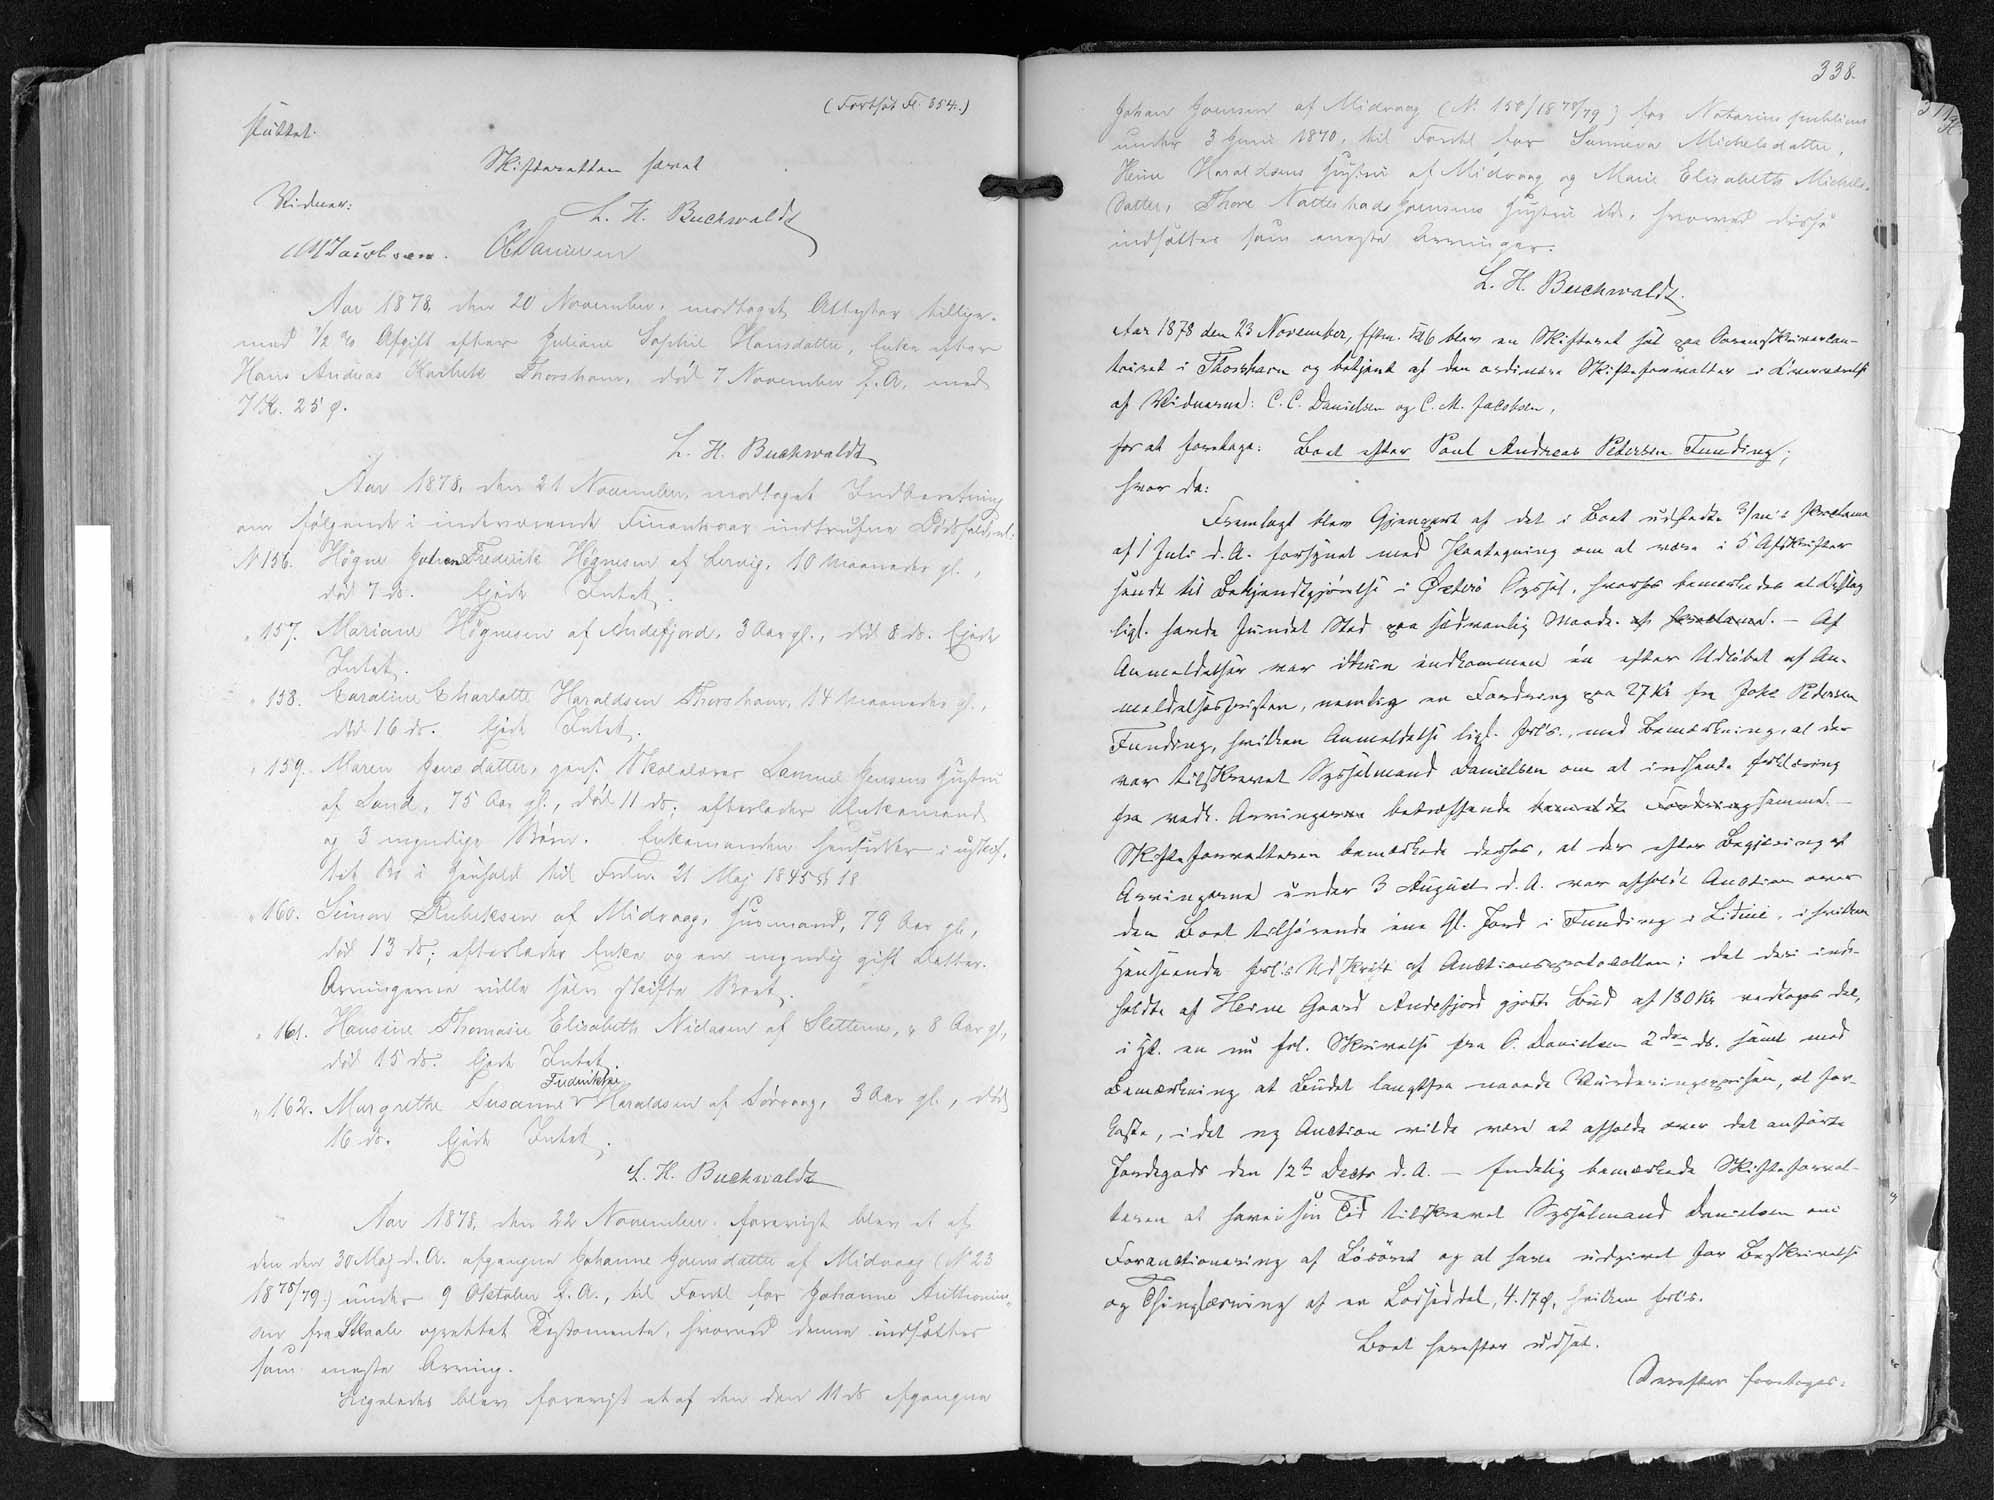 (Fortsat Fl. 354.)
sluttet.
Skifteretten hævet
Vidner:
L. H. Buchwaldt
CMJacobsen. CCDanielsen
Aar 1878, den 20 November, modtaget Attester tillige-
med ½ % Afgift efter Juliane Sophie Hansdatter, Enke efter
Hans Andreas Thorshavn, død 7 November d. A. med
7 Kr. 25 Ø.
L. H. Buchwaldt
Aar 1878, den 21 November, modtaget Indberetning
om følgende i indeværende Finantsaar indtrufne Dødsfald, nl:
N 156. Høgne Johan Frederik Høgnesen af Lervig, 10 Maaneder gl.,
død 7 ds. Ejede Intet.
" 157. Mariane Høgnesen af Andefjord, 3 Aar gl., død 8 ds. Ejede
Intet.
" 158. Caroline Charlotte Haraldsen Thorshavn, 14 Maaneder gl.,
død 16 ds. Ejede Intet.
" 159. Maren Jensdatter, Skolelærer Samuel Jensens Hustru
af Sand, 75 Aar gl., død 11 ds; efterlader Enkemand
og 3 myndige Børn. Enkemanden hensidder i uskif-
tet Bo i Henhold til Frdn. 21 Maj 1845 § 18.
" 160. Simon af Midvaag, Husmand, 79 Aar gl.,
død 13 ds; efterlader Enke og en myndig gift Datter.
Arvingerne ville selv skifte Boet.
" 161. Hansine Thomasie Elisabeth af Sletterne, 8 Aar gl.,
død 15 ds. Ejede Intet.
Frederikke
" 162. Margrethe Susanne Haraldsen af Sørvaag, 3 Aar gl., død
16 ds. Ejede Intet.
L. H. Buchwaldt
Aar 1878, den 22 November, forevist blev et af
den den 30 Maj d. A. afgangne Johanne Joensdatter af Midvaag (N 23
1878/79) under 9 Oktober f. A., til Fordel for Johanne
sen fra Skaale oprettet Testamente, hvorved denne indsættes
som eneste Arving.
Ligeledes blev forevist et af den den 11 ds afgangne
338.
Johan Joensen af Midvaag (N. 150/1878/79) for Notarius publicus
under 3 Juni 1870, til Fordel for Sunneva Michelsdatter,
Heine Haraldsens Hustru af Midvaag og Marie Elisabeth Michels-
datter, Thore Joensens Hustru ibd., hvorved disse
indsættes som eneste Arvinger.
L. H. Buchwaldt.
Aar 1878 den 23 November, Eftm. Kl 6 blev en Skifteret sat paa Sorenskriverkon-
toiret i Thorshavn og betjent af den ordinære Skifteforvalter i Overværelse
af Vidnerne: C. C. Danielsen og C. M. Jacobsen,
for at foretage: Boet efter Poul Andreas Pedersen Funding;
hvor da:
Fremlagt blev Gjenpart af det i Boet udstedte 3/mr's Proclama
af 1 Juli d. A. forsynet med Paategning om at være i 5 Afskrifter
sendt til Bekjendtgjørelse i Østerø Syssel, hvorhos bemærkedes at Kyslag
ligl. havde fundet Sted paa sædvanlig Maade. af Proclamet. — Af
Anmeldelser var ikkun indkommen én efter Udløbet af An-
meldelsesfristen, nemlig en Fordring paa 27 Kr fra Joks Pedersen
Funding, hvilken Anmeldelse ligl. frl's., med Bemærkning, at der
var tilskrevet Sysselmand Danielsen om at indhente Erklæring
fra vedk. Arvinger betræffende bemeldte Fordring samme. —
Skifteforvalteren bemærkede derhos, at der efter Begjæring af
Arvingerne under 3 August d. A. var afholdt Auction over
den Boet tilhørende ene Gl. Jord i Funding i Lidini, i hvilken
Henseende frl's Udskrift af Auctionsprotocollen; det deri inde-
holdte af Heine Gaard Andefjord gjorte Bud af 180 Kr vedtoges det,
i Hl. en nu frl. Skrivelse fra O. Danielsen 2den ds. samt med
Bemærkning at Budet langtfra naaede Vurderingsprisen, at for-
kaste, idet ny Auction vilde være at afholde over det anførte
Jordegods den 12te Decbr d. A. — Endelig bemærkede Skifteforval-
teren at have i sin Tid tilskrevet Sysselmand Danielsen om
Forauctionering af Løsøret og at have udgivet for Beskrivelse
og Thinglæsning af en Lodseddel, 4.17 Ø, hvilken frl's.
Boet herefter udsat.
Derefter foretoges: